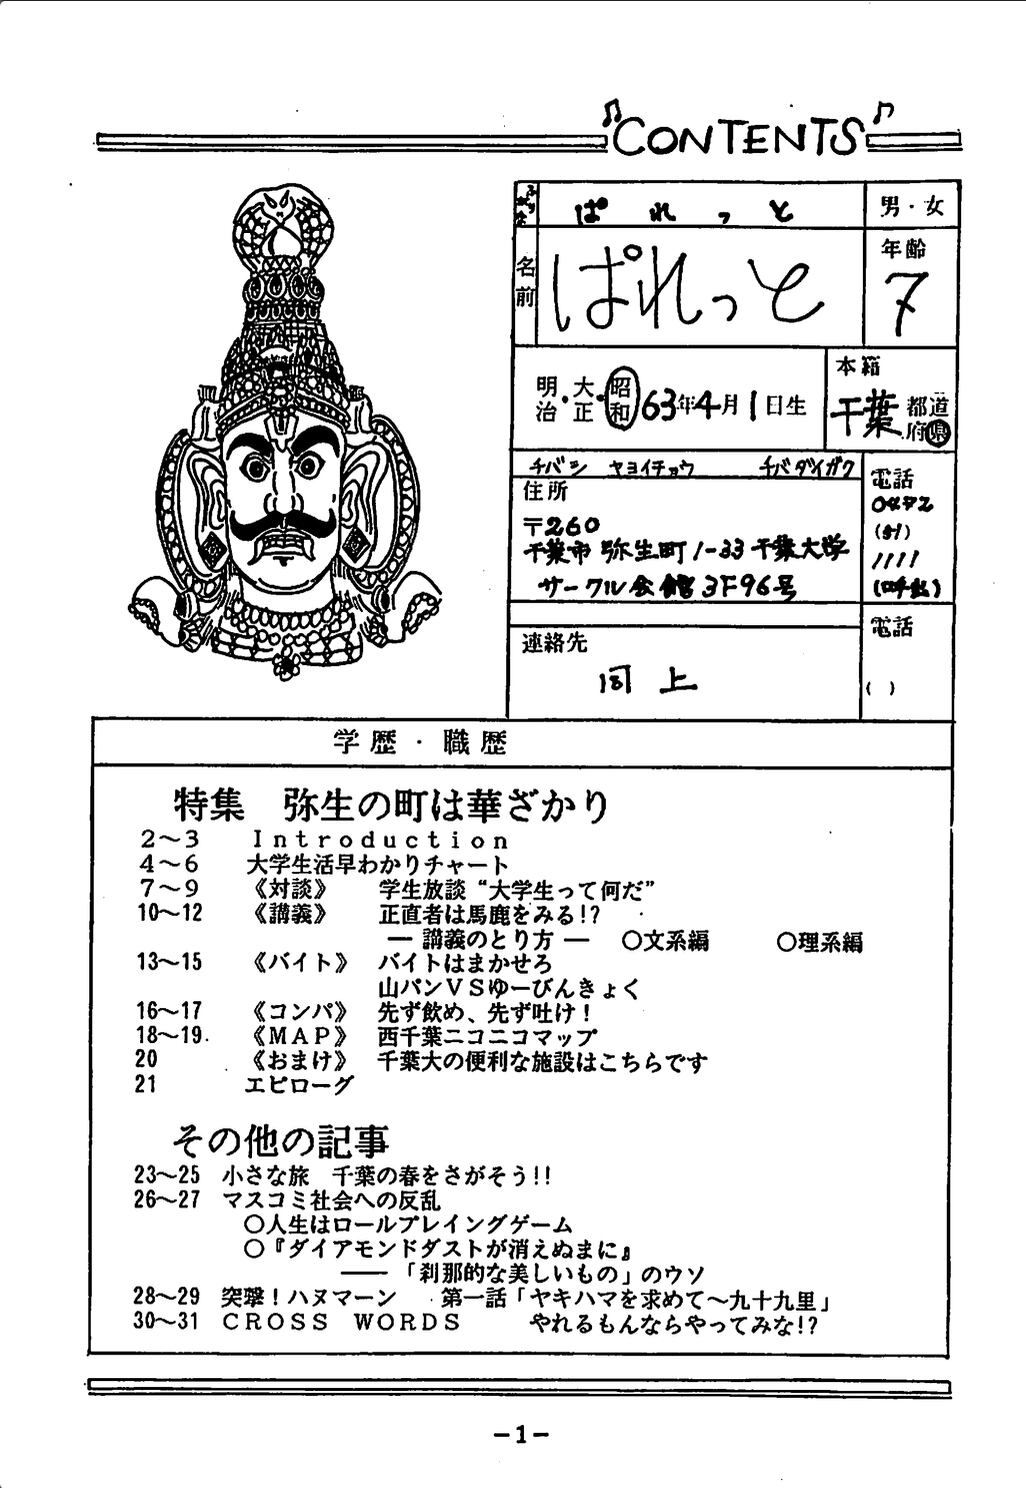 "CONTENTS"
ふりがな ぱれっと
男・女
名前 ぱれっと
年齢 7
明治・大正・昭和 63年4月1日生
本籍 千葉 都道府県
チバシ ヤヨイチョウ チバダイガク
住所
〒260
千葉市弥生町1-33千葉大学
サークル会館3F96号
電話
0472
(51)
1111
(呼出)
連絡先
同上
電話
( )
学歴・職歴
特集 弥生の町は華ざかり
2〜3 Introduction
4〜6 大学生活早わかりチャート
7〜9 《対談》 学生放談“大学生って何だ”
10〜12 《講義》 正直者は馬鹿をみる!?
― 講義のとり方 ― ○文系編 ○理系編
13〜15 《バイト》 バイトはまかせろ
山パンVSゆーびんきょく
16〜17 《コンパ》 先ず飲め、先ず吐け!
18〜19 《MAP》 西千葉ニコニコマップ
20 《おまけ》 千葉大の便利な施設はこちらです
21 エピローグ
その他の記事
23〜25 小さな旅 千葉の春をさがそう!!
26〜27 マスコミ社会への反乱
○人生はロールプレイングゲーム
○『ダイアモンドダストが消えぬまに』
――「刹那的な美しいもの」のウソ
28〜29 突撃!ハヌマーン 第一話「ヤキハマを求めて〜九十九里」
30〜31 CROSS WORDS やれるもんならやってみな!?
-1-